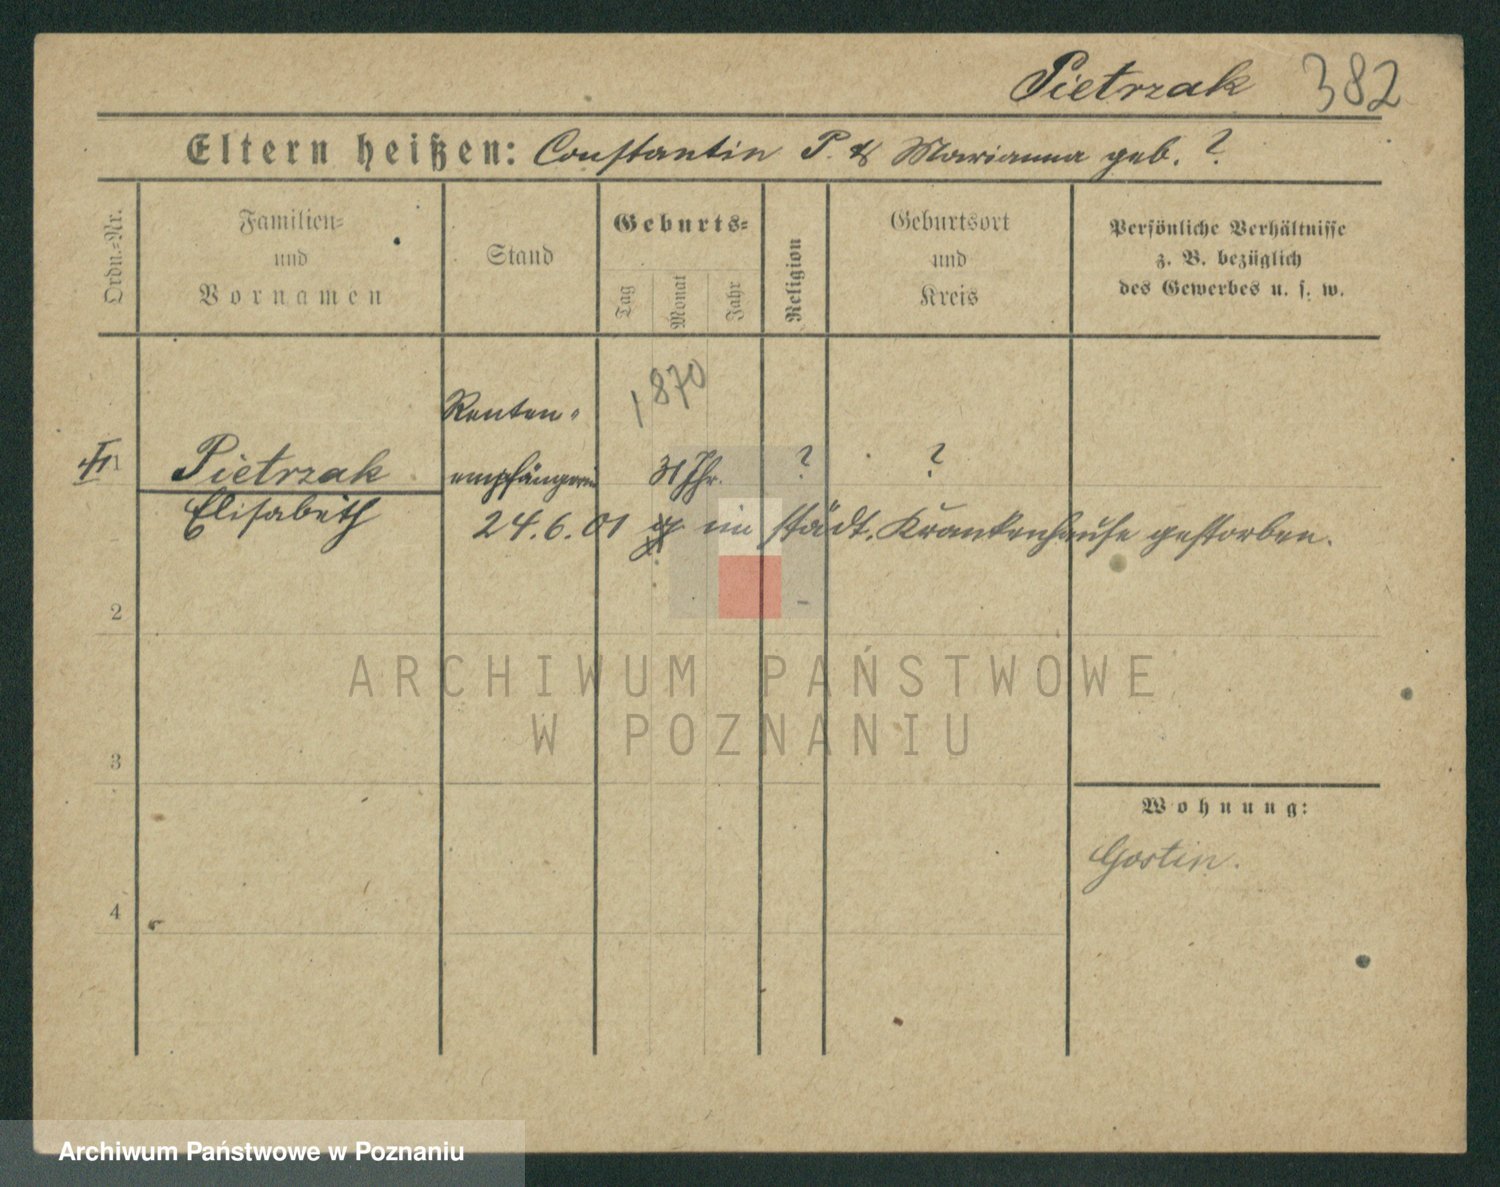 Pietrzak 382
Eltern heißen: Constantin P. & Marianna geb. ?
Ordn.-Nr.
Familien-
und
Vornamen
Stand
Geburts-
Tag
Monat
Jahr
Religion
Geburtsort
und
Kreis
Persönliche Verhältnisse
z. B. bezüglich
des Gewerbes u. s. w.
1870
Renten-
1 Pietrzak empfängerin 31 Jhr. ? ?
Elisabeth 24.6.01 im städt. Krankenhause gestorben.
2
ARCHIWUM PAŃSTWOWE
W POZNANIU
3
Wohnung:
Gostin.
4
Archiwum Państwowe w Poznaniu